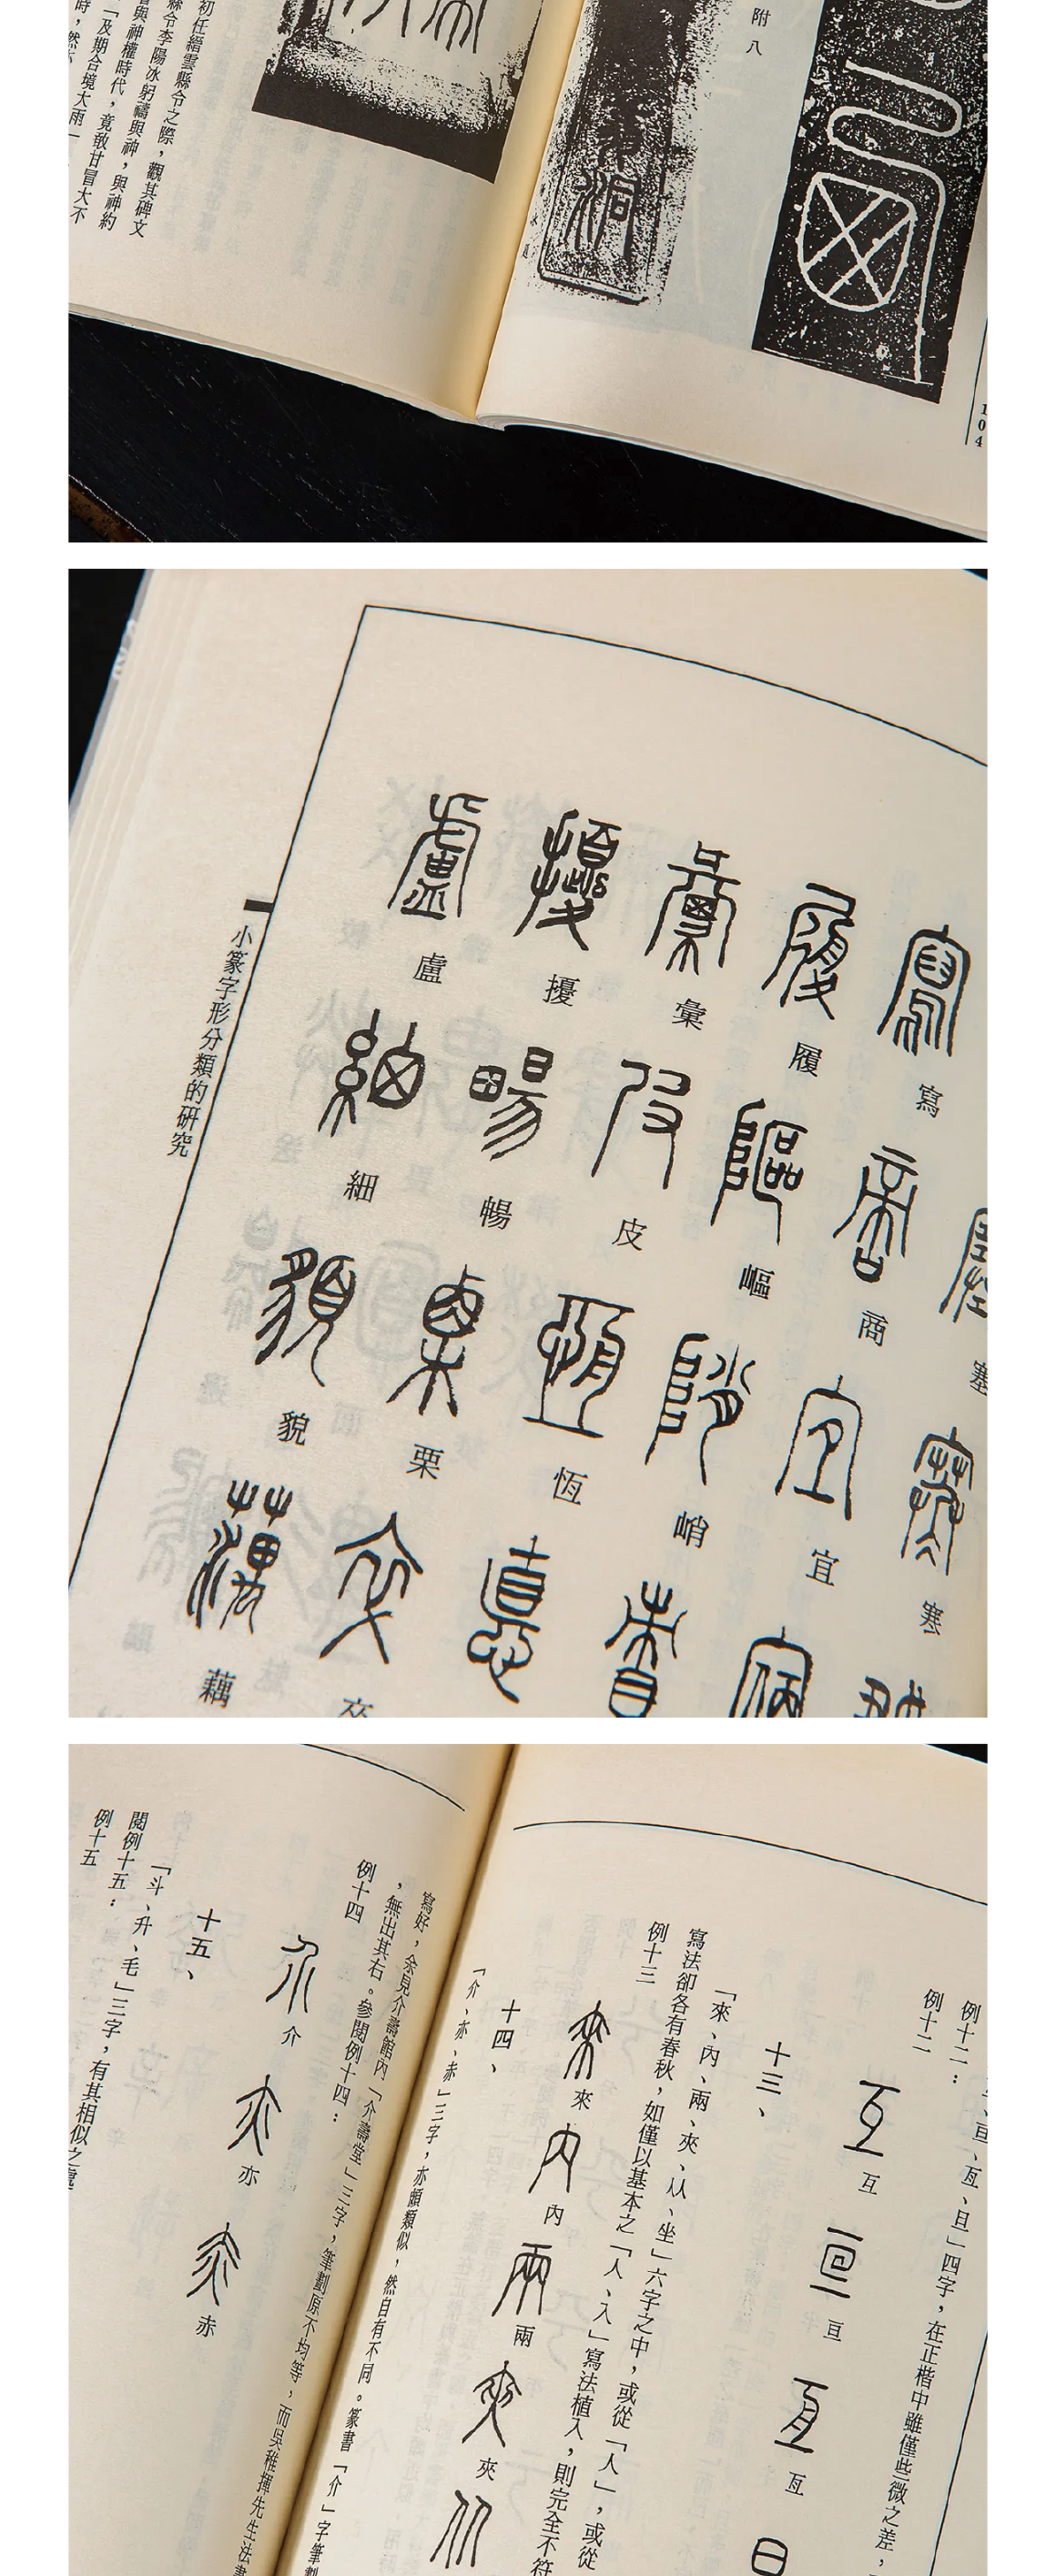 附八
104
初任縉雲縣令之際，觀其碑文
縣令李陽冰躬禱與神，與神約
與神權時代，竟敢甘冒大不
「及期合境大雨
時，然
寫
塞
寒
履
商
宜
彙
嶇
峭
擾
皮
恆
盧
暢
栗
卒
細
貌
藕
小篆字形分類的研究
亘、亙、旦」四字，在正楷中雖僅些微之差，
例十二：
例十二
互
亘
亙
十三、
「來、內、兩、夾、从、坐」六字之中，或從「人」，或從
寫法卻各有春秋，如僅以基本之「人、入」寫法植入，則完全不符
例十三
來
內
兩
夾
十四、
「介、亦、赤」三字，亦頗類似，然自有不同。篆書「介」字筆劃
寫好，余見介壽館內「介壽堂」三字，筆劃原不均等，而吳稚揮先生法書
，無出其右。參閱例十四：
例十四
介
亦
赤
十五、
「斗、升、毛」三字，有其相似之處
閱例十五：
例十五